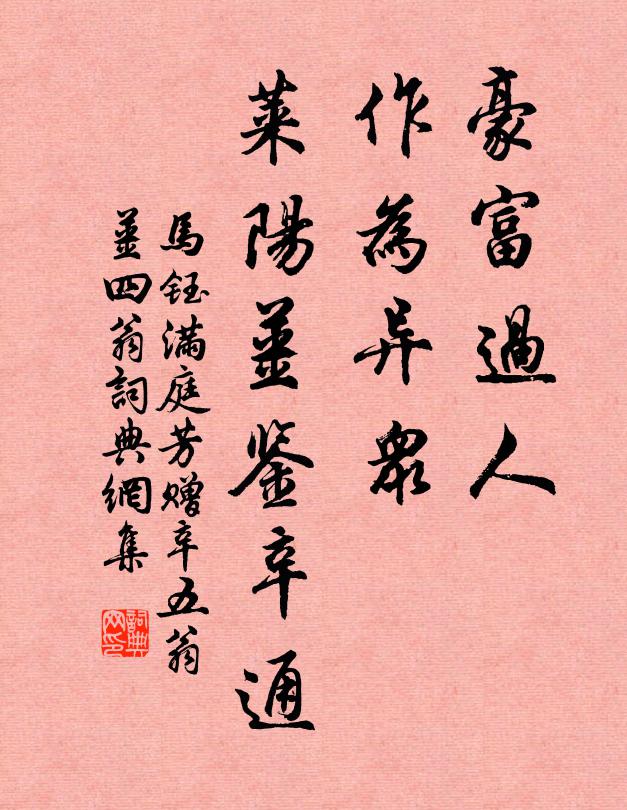 豪富過人
作為异衆
萊陽薑鉴辛通
馬鈺满庭芳赠辛五翁
薑四翁詞典網集
詞典网印